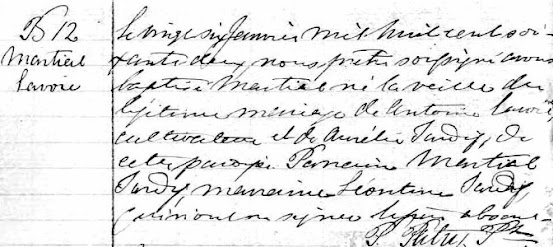 B 12
Martial
Lavoie
Le vingt six Janvier mil huit cent soi-
xante deux nous prêtre soussigné avons
baptisé Martial né la veille du
légitime mariage de Antoine Lavoie
cultivateur et de Aurélie Tardif, de
cette paroisse Parrain Martial
Tardif, marraine Léontine Tardif,
qui ont signé le père absent